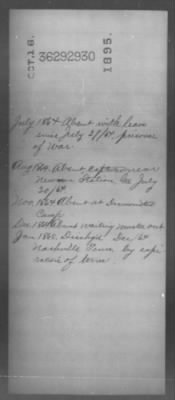 OCT. 18.
36292930
1895.
July 1864 Absent with leave
since July 27/64. prisoner
of War.
Aug 1864. Absent, captured near
Newnan Station, Ga July
Nov. 1864 Absent at Dismounted
Camp
Dec 1864 Absent waiting muster out
Jan 1865. Discharged Dec/64
Nashville Tenn. by expi
ration of term.